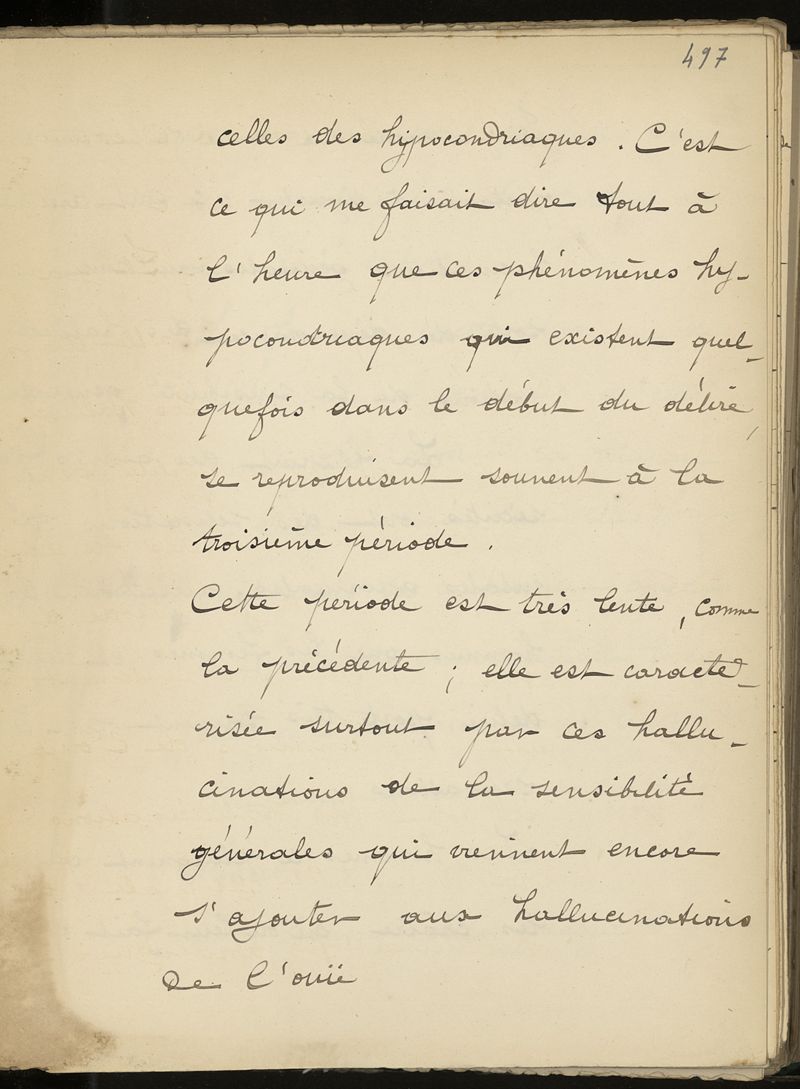 497
celles des hypocondriaques. C'est
ce qui me faisait dire tout à
l'heure que ces phénomènes hy-
pocondriaques qui existent quel-
quefois dans le début du délire,
se reproduisent souvent à la
troisième période.
Cette période est très lente, comme
la précédente ; elle est caracté-
risée surtout par ces hallu-
cinations de la sensibilité
générales qui viennent encore
s'ajouter aux hallucinations
De l'ouïe